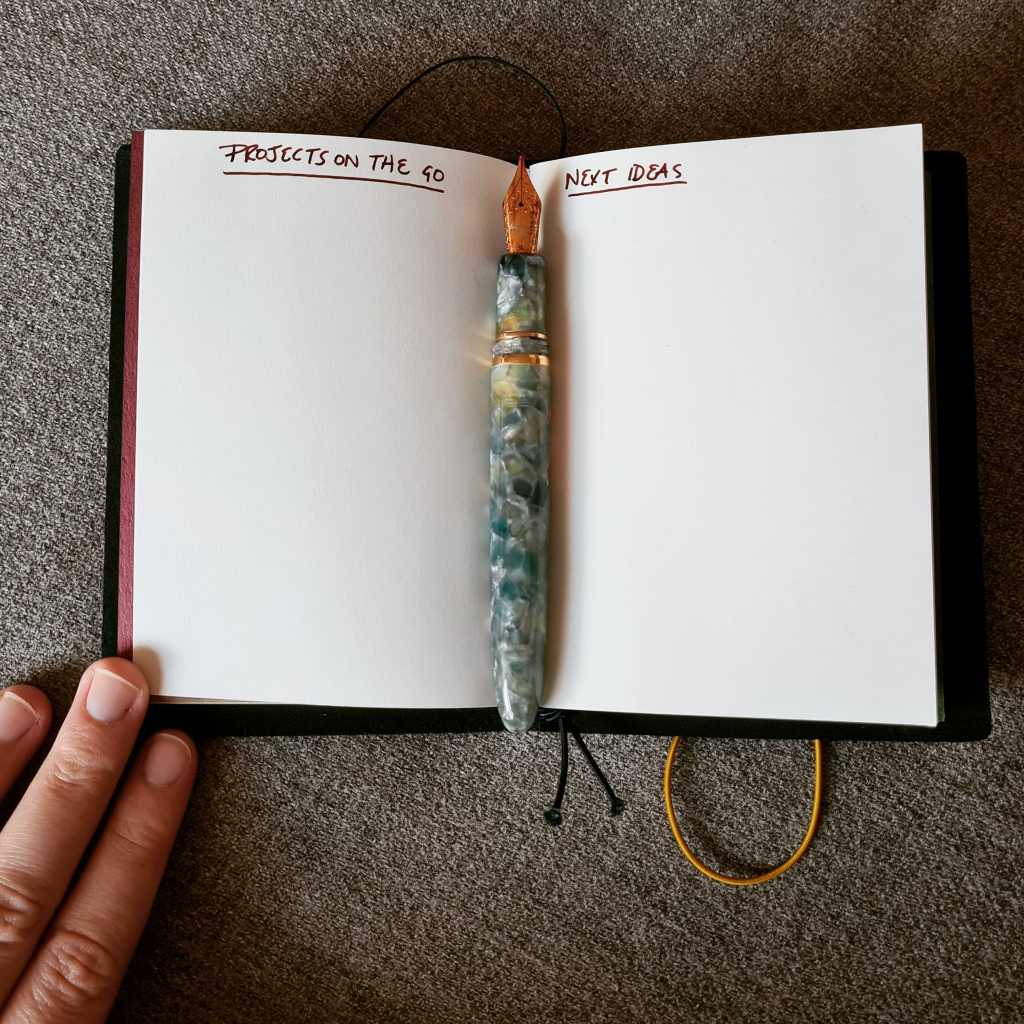 PROJECTS ON THE GO
NEXT IDEAS